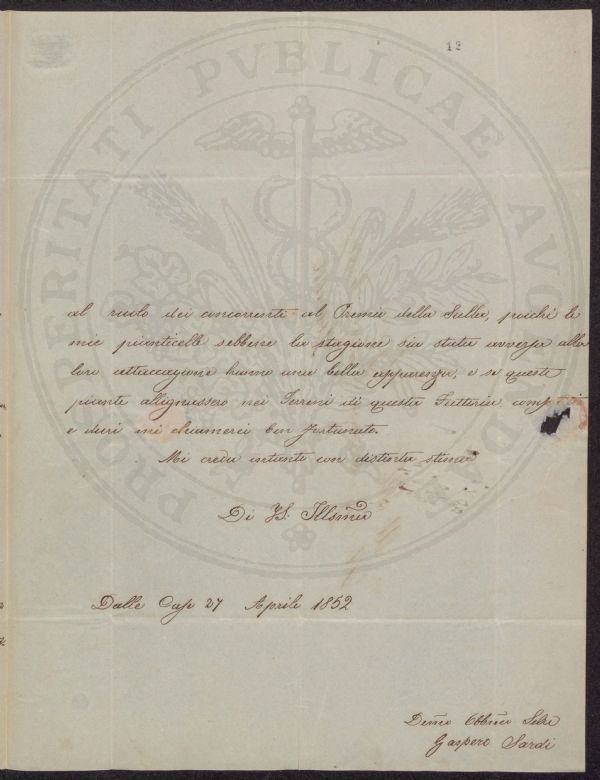 12
PROSPERITATI PVBLICAE AVGENDAE
al ruolo dei concorrenti al Premio della Sulla, poichè le
mie pianticelle sebbene la stagione sia stata avversa alla
loro attaccagione hanno una bella apparenza, e se queste
piante allignassero nei Terreni di questa Fattoria
e duri mi chiamerei ben fortunato.
Mi creda intanto con distinta stima
Di VS. Illsma
Dalle Case 27 Aprile 1852
Dmo Obbmo Serv
Gaspero Sardi